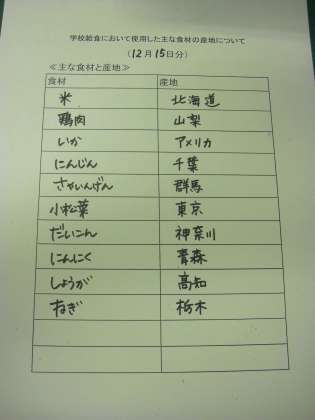 学校給食において使用した主な食材の産地について
(12月15日分)
≪主な食材と産地≫
食材 産地
米 北海道
鶏肉 山梨
いか アメリカ
にんじん 千葉
さやいんげん 群馬
小松菜 東京
だいこん 神奈川
にんにく 青森
しょうが 高知
ねぎ 栃木